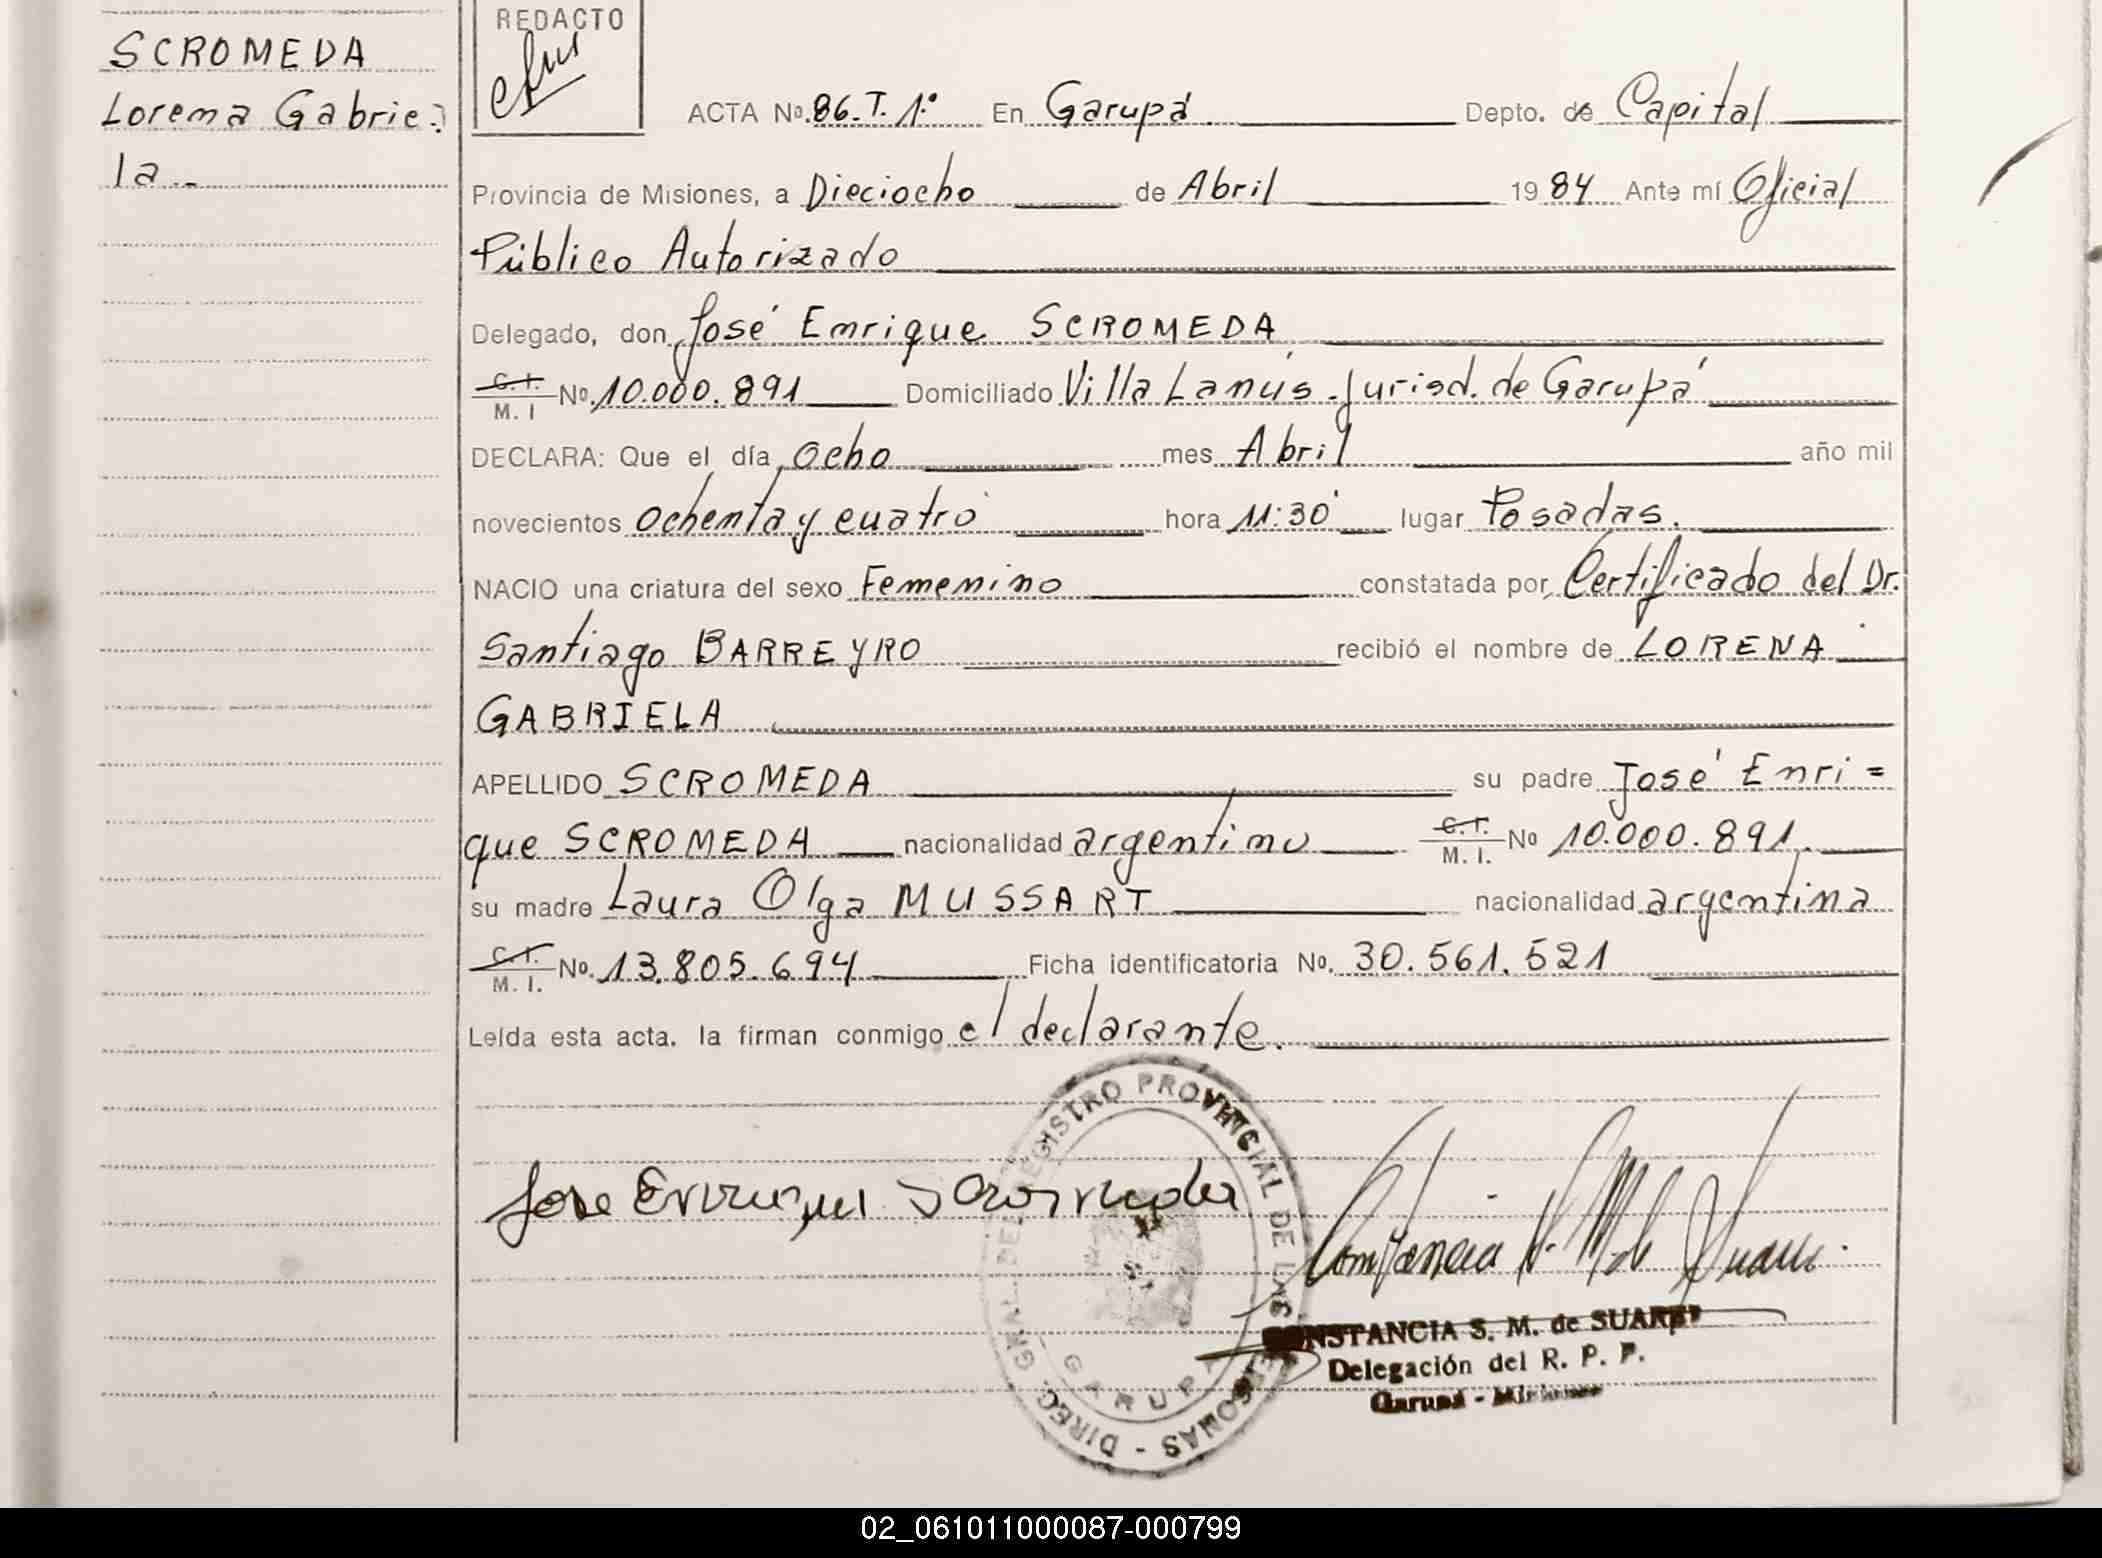 SCROMEDA
Lorena Gabrie-
la.-
REDACTO
ACTA No. 86.T.1º En Garupá Depto. de Capital
Provincia de Misiones, a Dieciocho de Abril 1984 Ante mí Oficial
Público Autorizado
Delegado, don José Enrique SCROMEDA
C.I. M. I No. 10.000.891 Domiciliado Villa Lanús - Jurisd. de Garupá
DECLARA: Que el día ocho mes Abril año mil
novecientos ochenta y cuatro hora 11:30 lugar Posadas.
NACIO una criatura del sexo Femenino constatada por Certificado del Dr.
Santiago BARREYRO recibió el nombre de LORENA
GABRIELA
APELLIDO SCROMEDA su padre José Enri=
que SCROMEDA nacionalidad argentino C.I. M. I. No 10.000.891.
su madre Laura Olga MUSSART nacionalidad argentina
C.I. M. I. No. 13.805.694 Ficha identificatoria No. 30.561.521
Leída esta acta, la firman conmigo el declarante.
Jose Enrique Scromeda
Constancia S. M. de Suarez
DIREC. GRAL. DEL REGISTRO PROVINCIAL DE LAS PERSONAS -
GARUPA
CONSTANCIA S. M. de SUAREZ
Delegación del R. P. P.
Garupá - Misiones
02_061011000087-000799